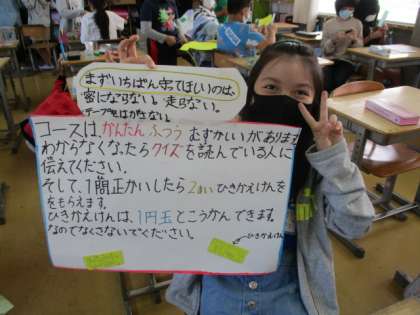 まずいちばん守てほしいのは、
密にならない。走らない。
テープをはがさない。
コースは、かんたん ふつう むずかしいがあります。
わからなくなったらクイズを読んでいる人に
伝えてください。
そして、1問正かいしたら2まいひきかえけんを
をもらえます。
ひきかえけんは、1円玉とこうかんできます。
なのでなくさないでください。
ひきかえけん